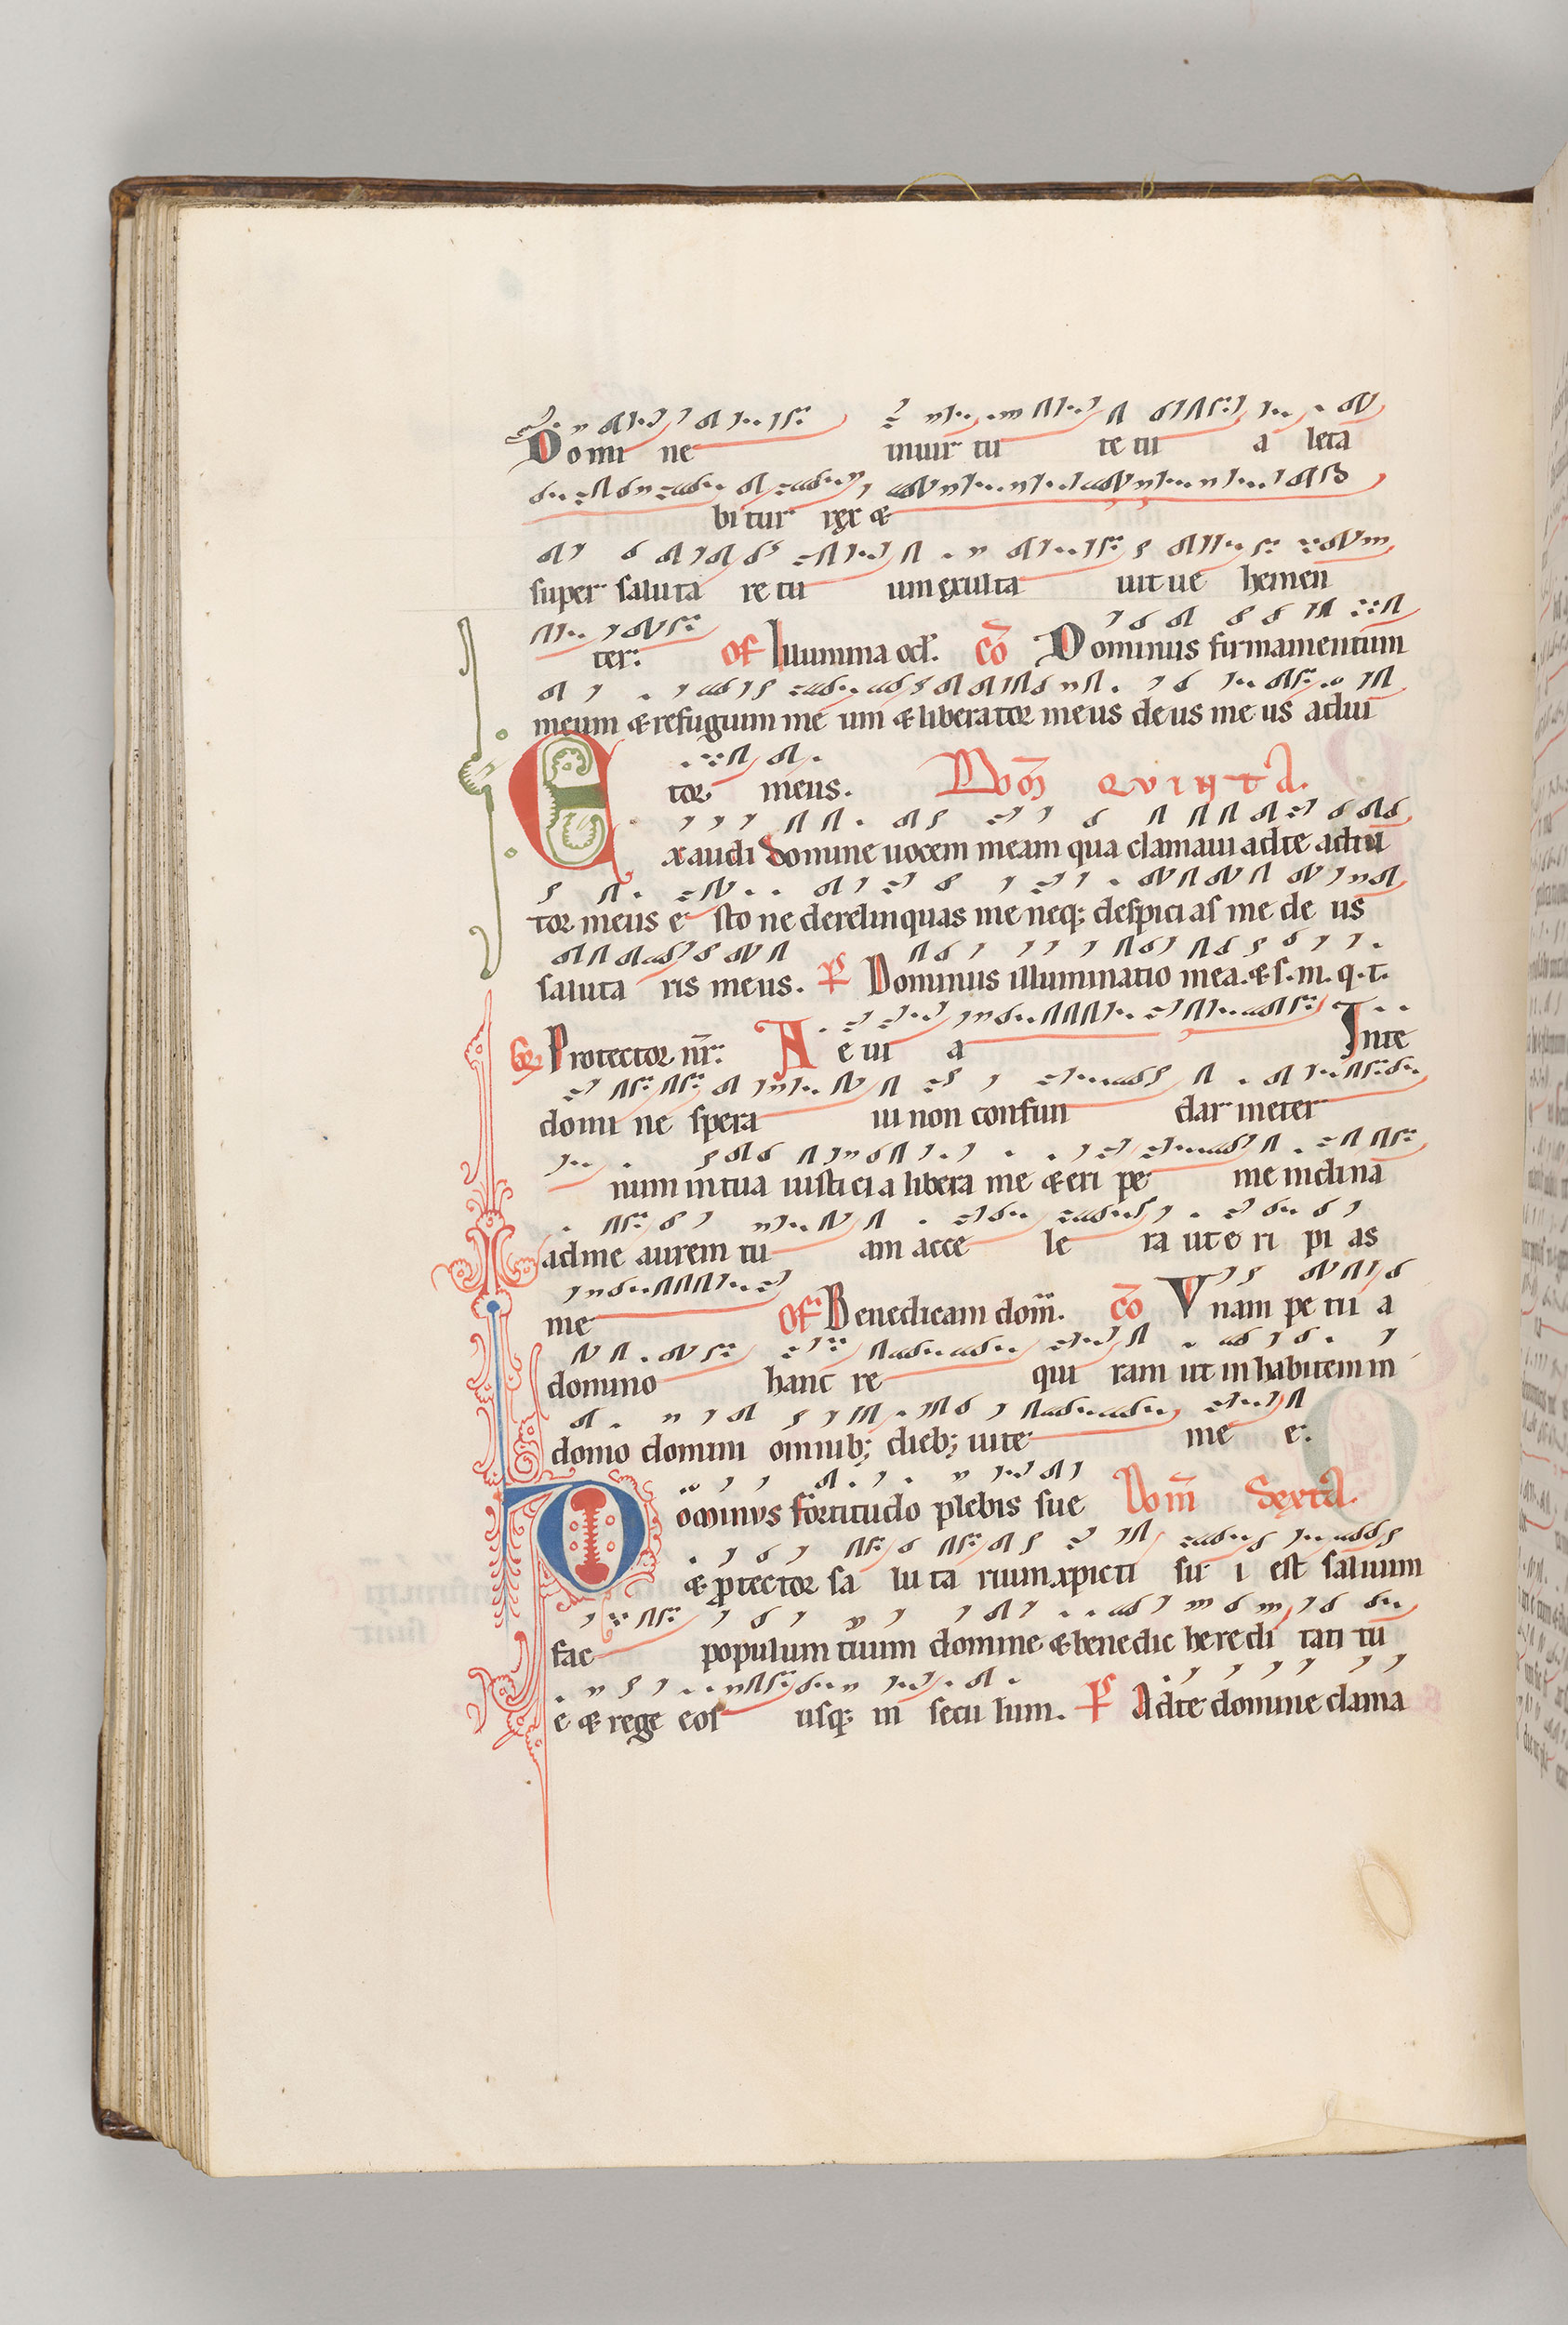 Domi ne inuir tu te tu a leta
bi tur rex &
super saluta re tu um exulta uit ue hemen
ter: Of Illumina oc̄l. Cō Dominus firmamentum
meum & refugium me um & liberator meus deus me us adiu
tor meus. Dōm QVINTA.
Exaudi domine uocem meam qua clamaui ad te adiu
tor meus e sto ne derelinquas me neq; despici as me de us
saluta ris meus. Ps Dominus illuminatio mea. & s. m. q. t.
Gr. Protector nr̄: A e ui a Inte
domi ne spera ui non confun dar in eter
num in tua iusti ci a libera me & eri pe me inclina
ad me aurem tu am acce le ra ut e ri pi as
me Of Benedicam dom̄. Cō Vnam pe tii a
domino hanc re qui ram ut inhabitem in
domo domini omnib; dieb; uite me e:
Dominus fortitudo plebis sue Dom̄ Sexta.
& ptector sa lu ta rium xpicti su i est saluum
fac populum tuum domine & benedic heredi tati tu
e & rege eos usq; in secu lum. Ps Ad te domine clama